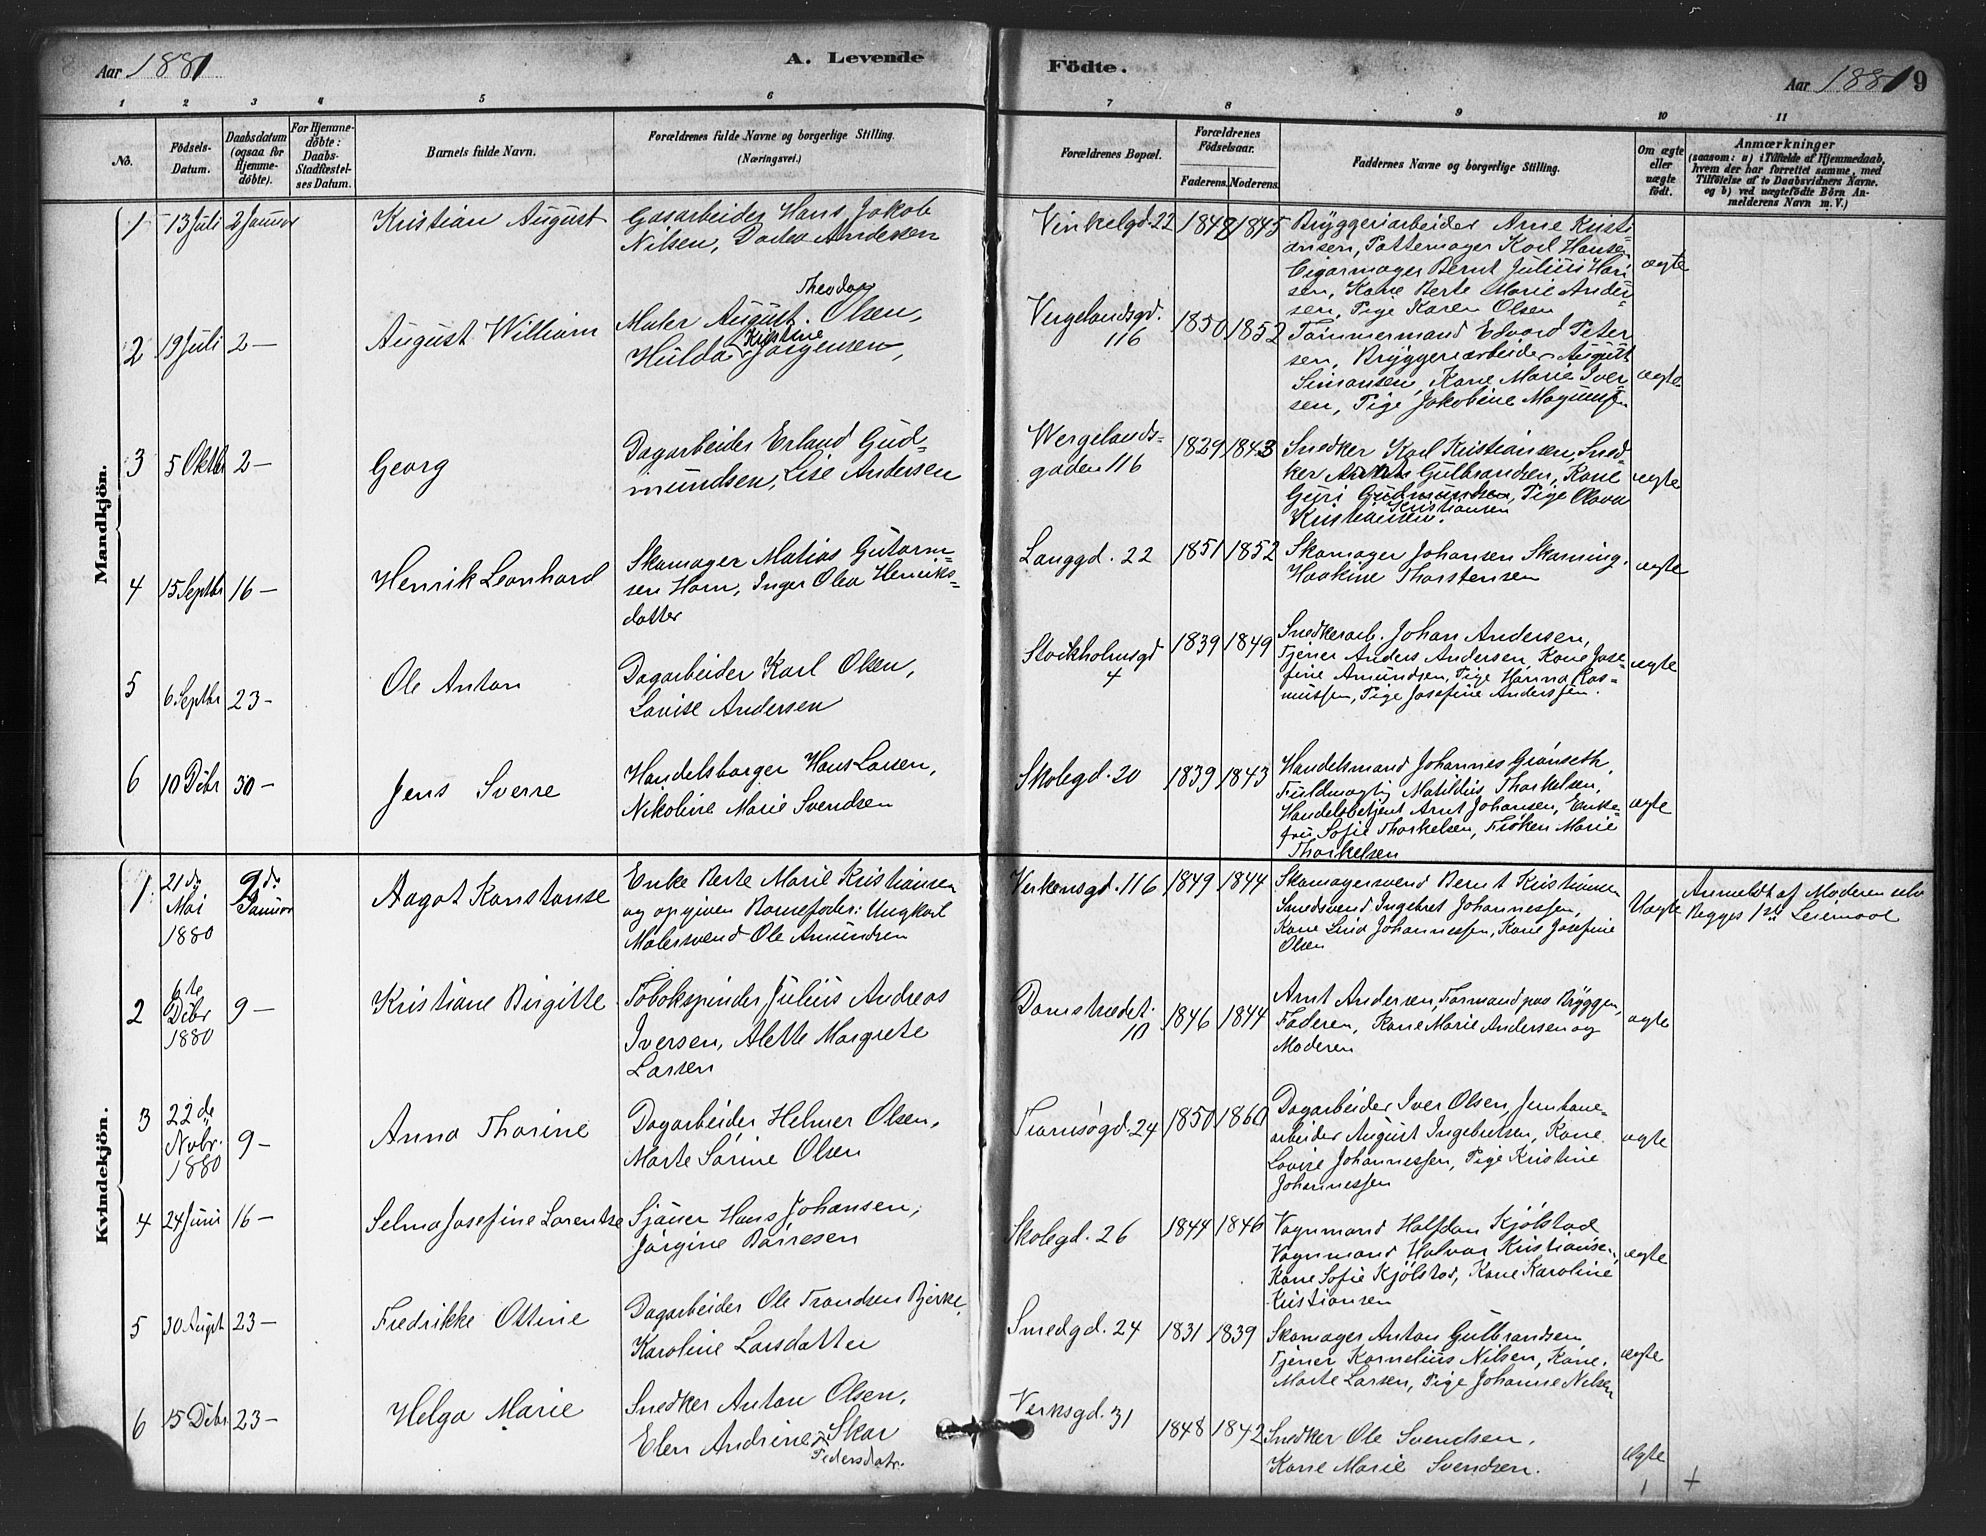 Aar 1881
A. Levende
Födte.
Aar 1881
9
1 2 3 4 5 6 7 8 9 10 11
No.
Födsels-
Datum.
Daabsdatum
(ogsaa for
Hjemme-
döbte).
For Hjemme-
döbte:
Daabs-
Stadfæstel-
ses Datum.
Barnets fulde Navn.
Forældrenes fulde Navne og borgerlige Stilling.
(Næringsvei.)
Forældrenes Bopæl.
Forældrenes
Födselsaar.
Faderens. Moderens.
Faddernes Navne og borgerlige Stilling.
Om ægte
eller
uægte
født.
Anmærkninger
(saasom: a) i Tilfælde af Hjemmedaab,
hvem der har forrettet samme, med
Tilföielse af to Daabsvidners Navne,
og b) ved uægtefödte Börn An-
melderens Navn m. V.)
Mandkjön.
1 13 Juli 2 Januar
Kristian August
Gasarbeider Hans Jakob
Nilsen, Dortea Andersen
Vinkelgd. 22
1848 1845
Bryggeriarbeider Arne Kristi-
ansen, Pottemager Karl Hansen
Cigarmager Bernt Julius Han-
sen, Kone Berte Marie Ander-
sen, Pige Karen Olsen
ægte
2 19 Juli 2 —
August William
Theodor
Maler August Olsen,
Kristine
Hulda Jörgensen,
Vergelandsgd.
116
1850 1852
Tömmermand Edvard Peter
sen, Bryggeriarbeider August
Simonsen, Kone Marie Iver
sen, Pige Jakobine Magnussen
ægte
3 5 Oktbr 2 —
Georg
Dagarbeider Erland Gud-
mundsen, Lise Andersen
Wergelands-
gaden 116
1829 1843
Snedker Karl Kristiansen, Sned-
ker Anton Gulbrandsen, Kone
Guri Gudmundsen, Pige Olava
Kristiansen
Kristiansen.
ægte
4 15 Septbr 16 —
Henrik Leonhard
Skomager Matias Gutorm-
sen Horn, Inger Olea Henriks-
datter
Langgd. 22
1851 1852
Skomager Johansen Skarning,
Haakine Thorstensen
ægte
5 6 Septbr 23 —
Ole Anton
Dagarbeider Karl Olsen,
Lovise Andersen
Stockholmsgd
4
1839 1849
Snedkerarb. Johan Andersen,
Tjener Anders Andersen, Kone Jose-
fine Amundsen, Pige Hanna Ras-
mussen, Pige Josefine Anderssen.
ægte
6 10 Debr 30 —
Jens Sverre
Handelsborger Hans Larsen,
Nikoline Marie Svendsen
Skolegd. 20
1839 1843
Handelsmand Johannes Grönseth,
Fuldmægtig Matildius Thorkelsen,
Handelsbetjent Arnt Johansen, Enke-
fru Sofie Thorkelsen, Fröken Marie
Thorkelsen
ægte
Kvindekjön.
1
21 de
Mai
1880
9 de
Januar
Aagot Konstanse
Enke Berte Marie Kristiansen
og opgiven Barnefader: Ungkarl
Malersvend Ole Amundsen
Verkensgd. 116
1849 1844
Skomagersvend Bernt Kristiansen
Smedsvend Ingebret Johannessen,
Kone Lina Johannessen, Kone Josefine
Olsen
Uægte
Anmeldt af Moderen selv
Begges 1ste Leiermaal
2
6te
Debr
1880
9 —
Kristiane Birgitte
Tobakspinder Julius Andreas
Iversen, Alette Margrete
Larsen
Damstrædet
10
1846 1844
Arnt Andersen, Formand paa Bryggen,
Faderen, Kone Marie Andersen og
Moderen
ægte
3
22 de
Nobr.
1880
9 —
Anna Thorine
Dagarbeider Helmer Olsen,
Marte Sörine Olsen
Tromsögd. 24
1850 1860
Dagarbeider Iver Olsen, Jernbane-
arbeider August Ingebretsen, Kone
Lovise Johannessen, Pige Kristine
Johannessen
ægte
4 24 Juni 16 —
Selma Josefine Lorentze
Sjöuer Hans Johansen,
Jörgine Börresen
Skolegd. 26
1844 1846
Vognmand Halfdan Kjölstad
Vognmand Halvor Kristiansen,
Kone Sofie Kjölstad, Kone Karoline
Kristiansen
ægte
5 30 Augst 23 —
Fredrikke Ottine
Dagarbeider Ole Trondsen Bjerke,
Karoline Larsdatter
Smedgd. 24
1831 1839
Skomager Anton Gulbrandsen,
Tjener Kornelius Nilsen, Kone
Marte Larsen, Pige Johanne Nilsen
ægte
6 15 Debr 23 —
Helga Marie
Snedker Anton Olsen,
Elen Andrine Skar
Pedersdatr.
Verksgd. 31
1848 1842
Snedker Ole Svendsen,
Kone Marie Svendsen.
ægte